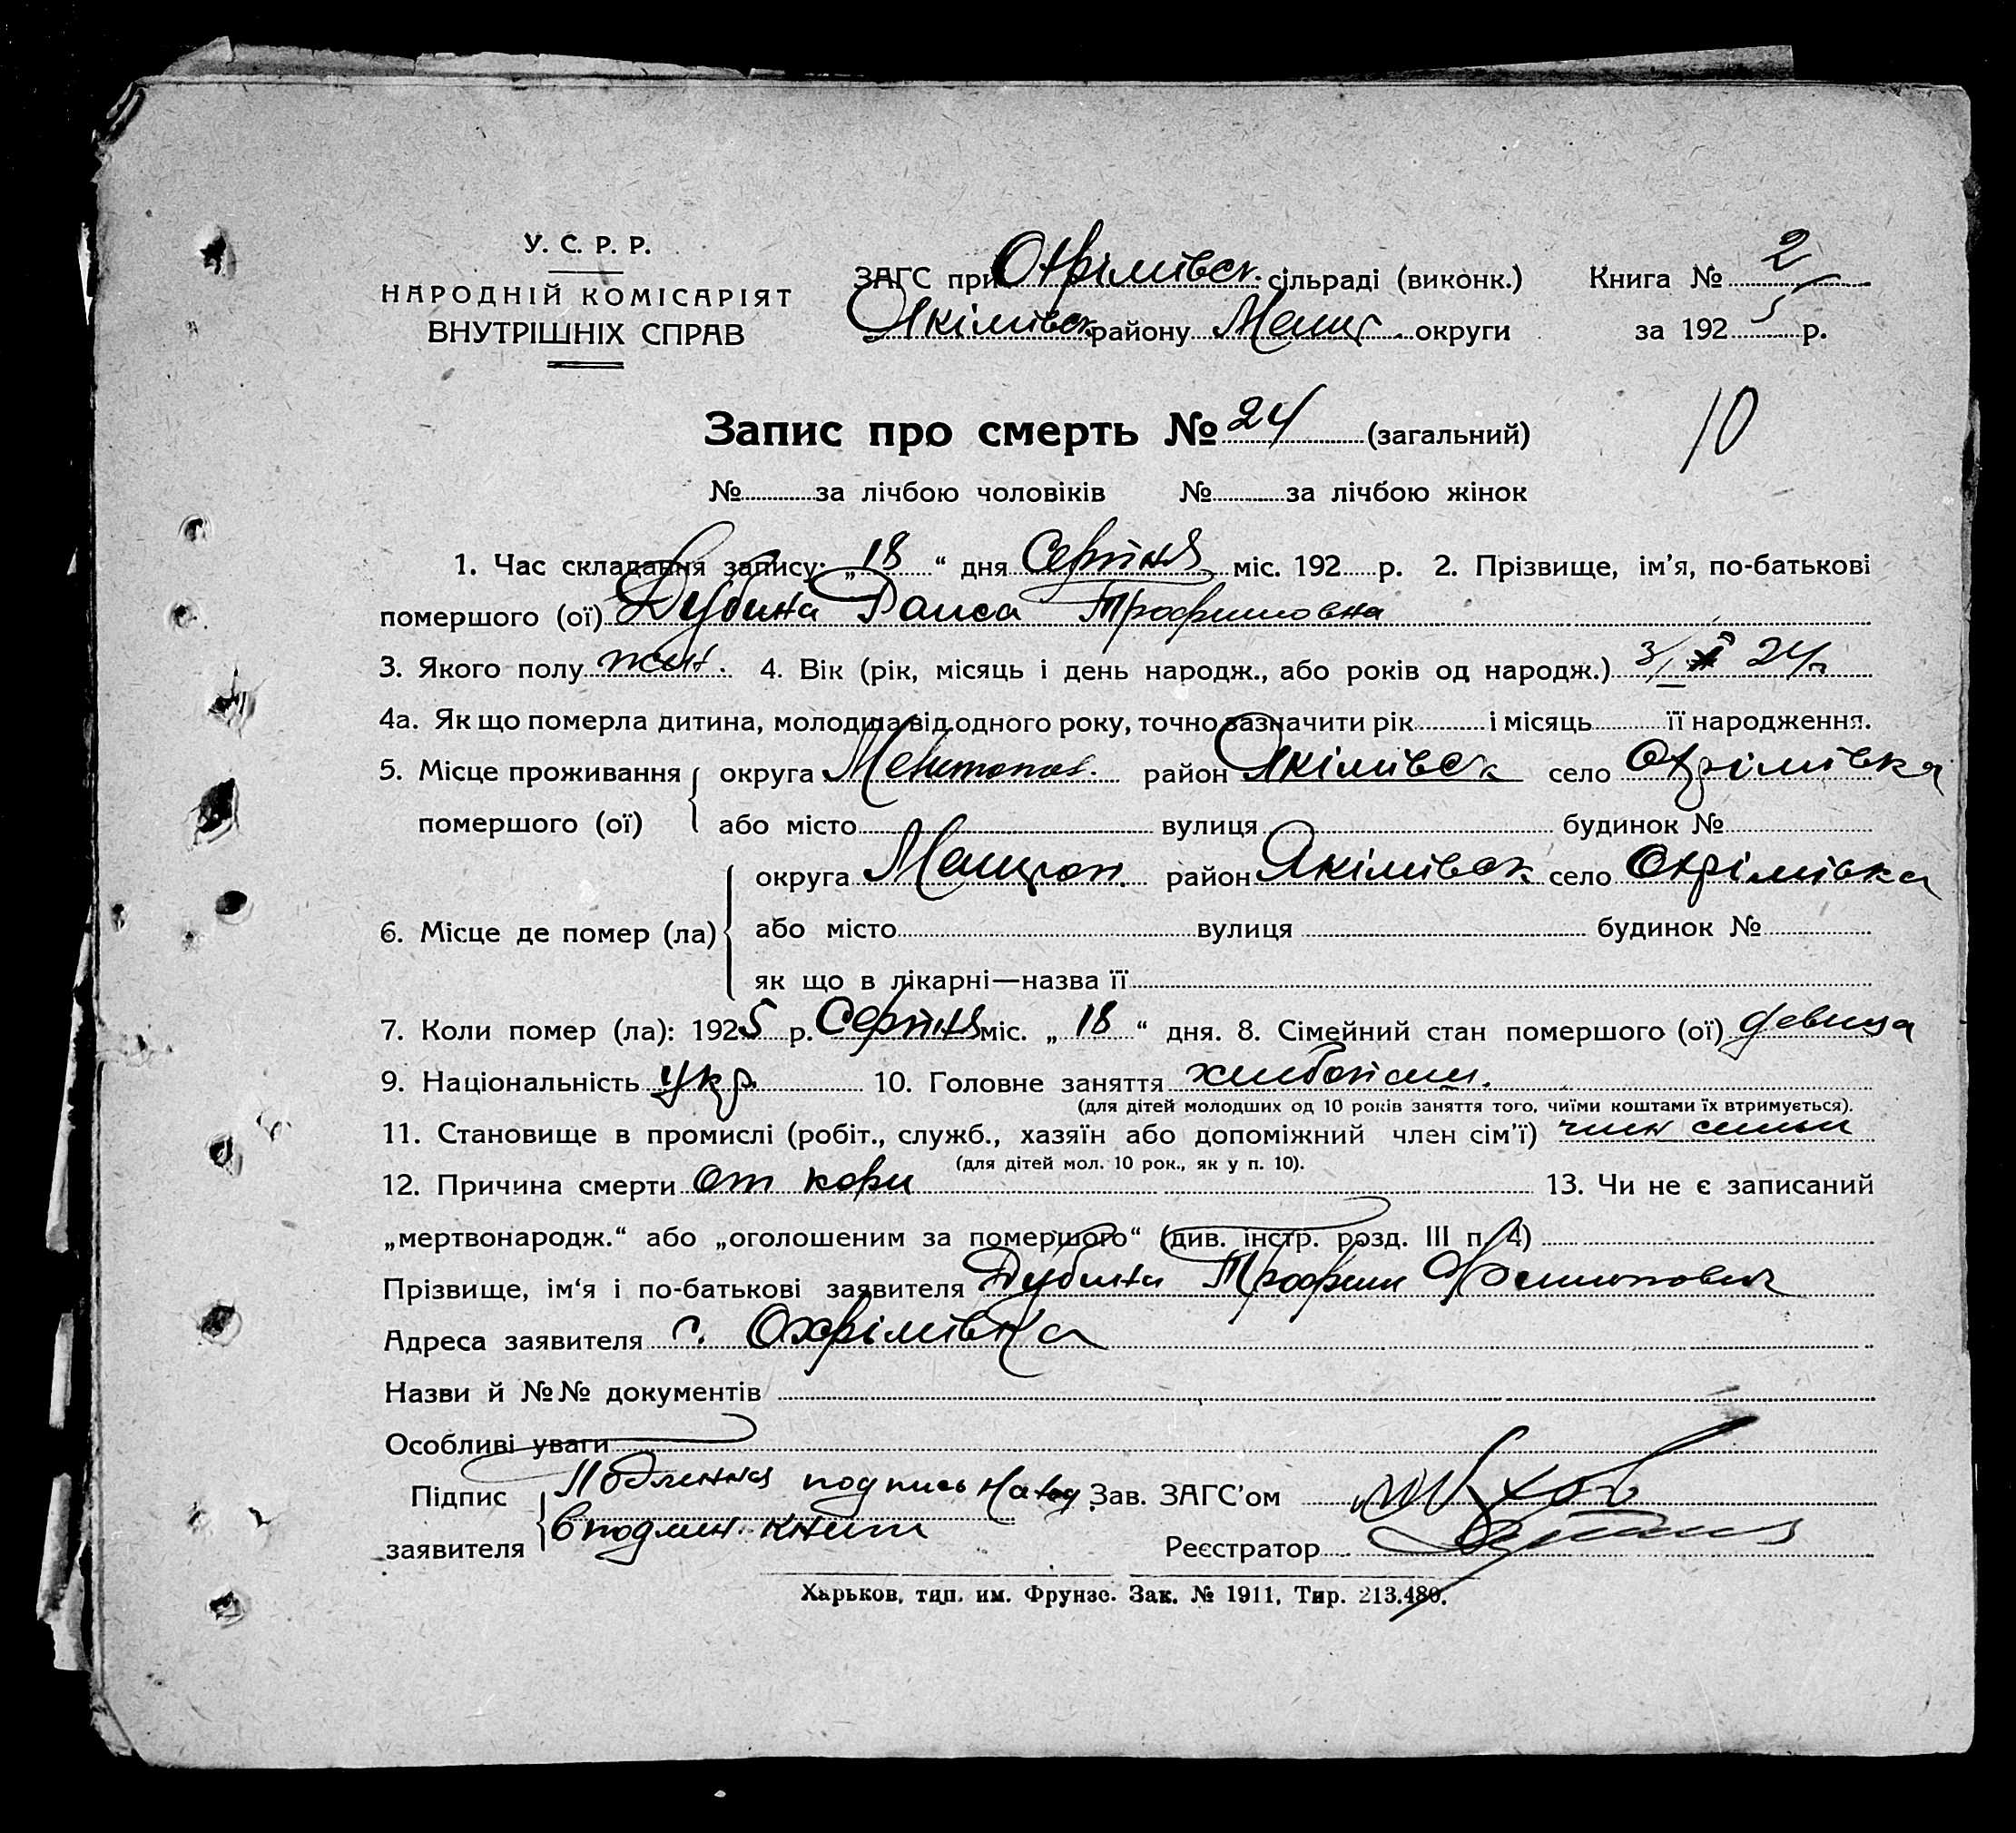 У. С. Р. Р.
НАРОДНІЙ КОМІСАРІЯТ
ВНУТРІШНІХ СПРАВ
ЗАГС при Охрімивск. сільраді (виконк.) Книга № 2
Якімивск району округи за 1925 р.
Запис про смерть № 24 (загальний)
10
№ за лічбою чоловіків № за лічбою жінок
1. Час складання запису: „18“ дня Серпня міс. 192 р. 2. Прізвище, ім’я, по-батькові
помершого (ої) Дубина Раиса Трофимовна
3. Якого полу жін. 4. Вік (рік, місяць і день народж., або років од народж.) 3/ 24
4а. Як що померла дитина, молодша від одного року, точно зазначити рік і місяць її народження.
5. Місце проживання округа Мелитопол. район Якімівск село Охрімівка
помершого (ої) або місто вулиця будинок №
6. Місце де помер (ла) округа район Якімівск село Охрімівка
або місто вулиця будинок №
як що в лікарні—назва її
7. Коли помер (ла): 1925 р. Серпня міс. „18“ дня. 8. Сімейний стан помершого (ої) девица
9. Національність укр. 10. Головне заняття
(для дітей молодших од 10 років заняття того, чиїми коштами їх втримується).
11. Становище в промислі (робіт., служб., хазяїн або допоміжний член сім’ї) член семьи
(для дітей мол. 10 рок., як у п. 10).
12. Причина смерти от кори 13. Чи не є записаний
„мертвонародж.“ або „оголошеним за помершого“ (див. інстр. розд. III п. 4)
Прізвище, ім‘я і по-батькові заявителя Дубина Трофим Филипович
Адреса заявителя с. Охрімівка
Назви й №№ документів
Особливі уваги
Підпис заявителя Подленная подпись
в подлин. книги
Зав. ЗАГС’ом
Реєстратор
Харьков, тип. им. Фрунзе. Зак. № 1911, Тир. 213.480.